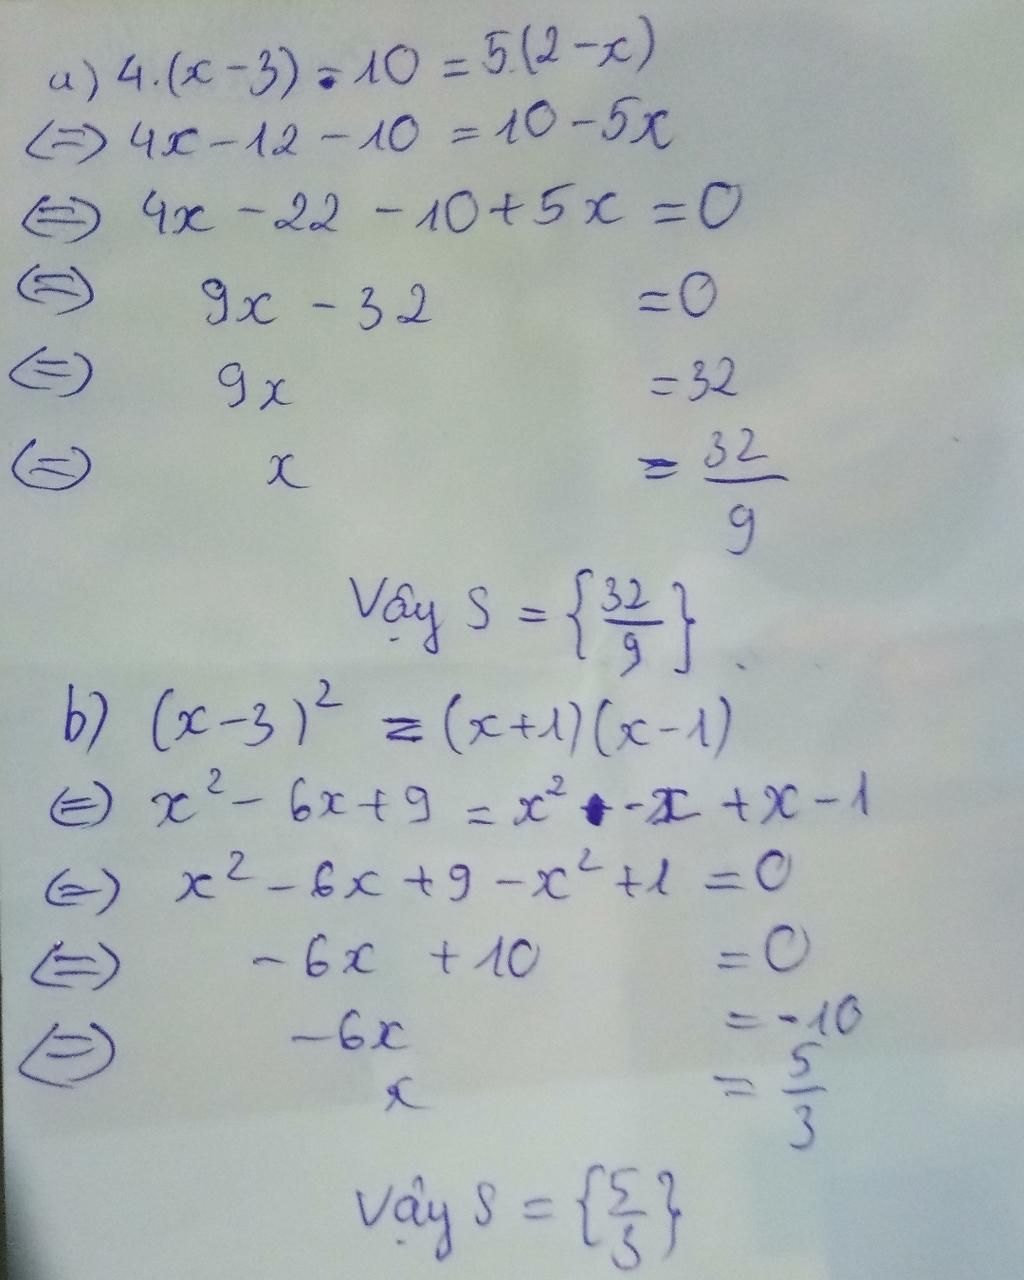 a) 4.(x-3) - 10 = 5.(2-x)
(=) 4x - 12 - 10 = 10 - 5x
(=) 4x - 22 - 10 + 5x = 0
(=) 9x - 32 = 0
(=) 9x = 32
(=) x = 32/9
Vậy S = {32/9}.
b) (x-3)² = (x+1)(x-1)
(=) x² - 6x + 9 = x² - x + x - 1
(=) x² - 6x + 9 - x² + 1 = 0
(=) - 6x + 10 = 0
(=) - 6x = - 10
x = 5/3
Vậy S = {5/3}